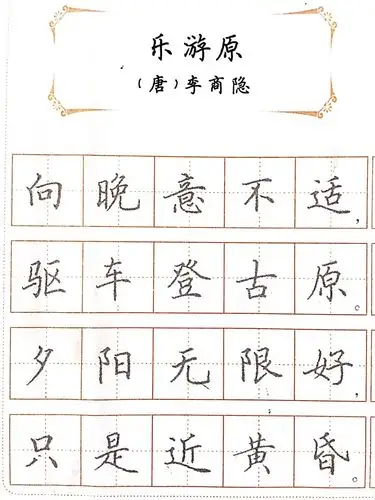 乐游原
（唐）李商隐
向晚意不适，
驱车登古原。
夕阳无限好，
只是近黄昏。